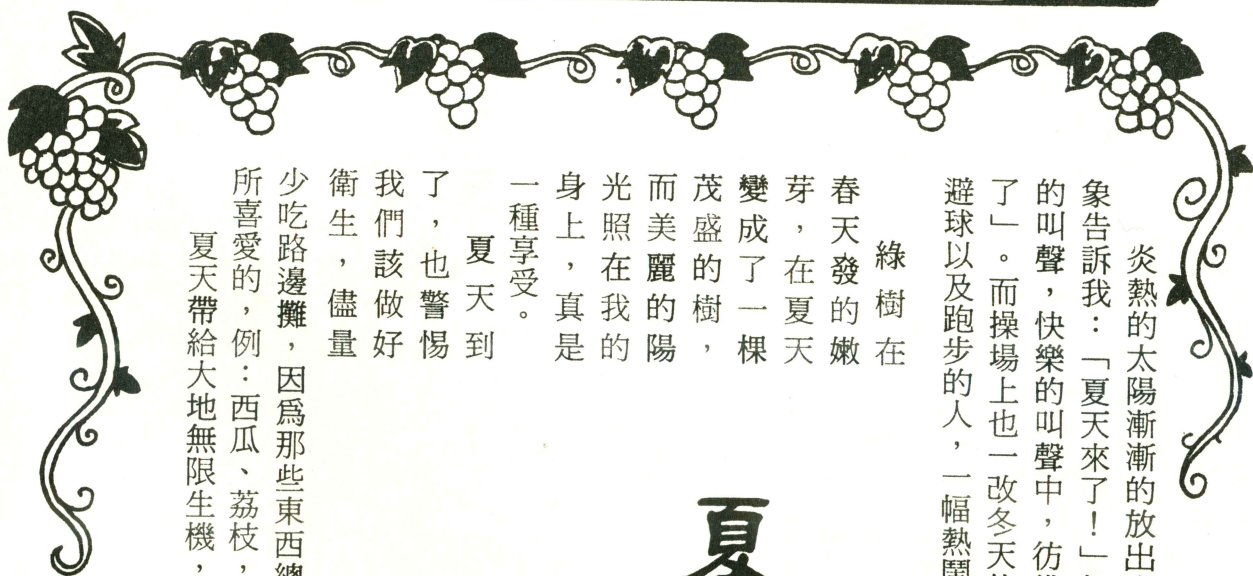 炎熱的太陽漸漸的放出
象告訴我：「夏天來了！」
的叫聲，快樂的叫聲中，彷
了」。而操場上也一改冬天
避球以及跑步的人，一幅熱鬧
綠樹在
春天發的嫩
芽，在夏天
變成了一棵
茂盛的樹，
而美麗的陽
光照在我的
身上，真是
一種享受。
夏天到
了，也警惕
我們該做好
衛生，儘量
少吃路邊攤，因爲那些東西總
所喜愛的，例：西瓜、荔枝，
夏天帶給大地無限生機，
夏